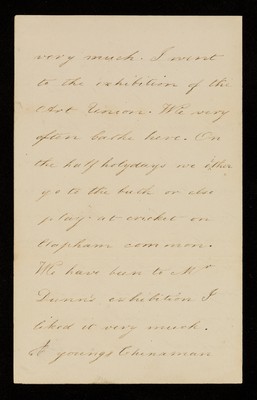 very much. I went
to the exhibition of the
Art Union. We very
often bathe here. On
the half holydays we either
go to the bath or else
play at cricket on
Clapham common.
We have been to Mr
Dunn's exhibition I
liked it very much.
A youngs Chinaman